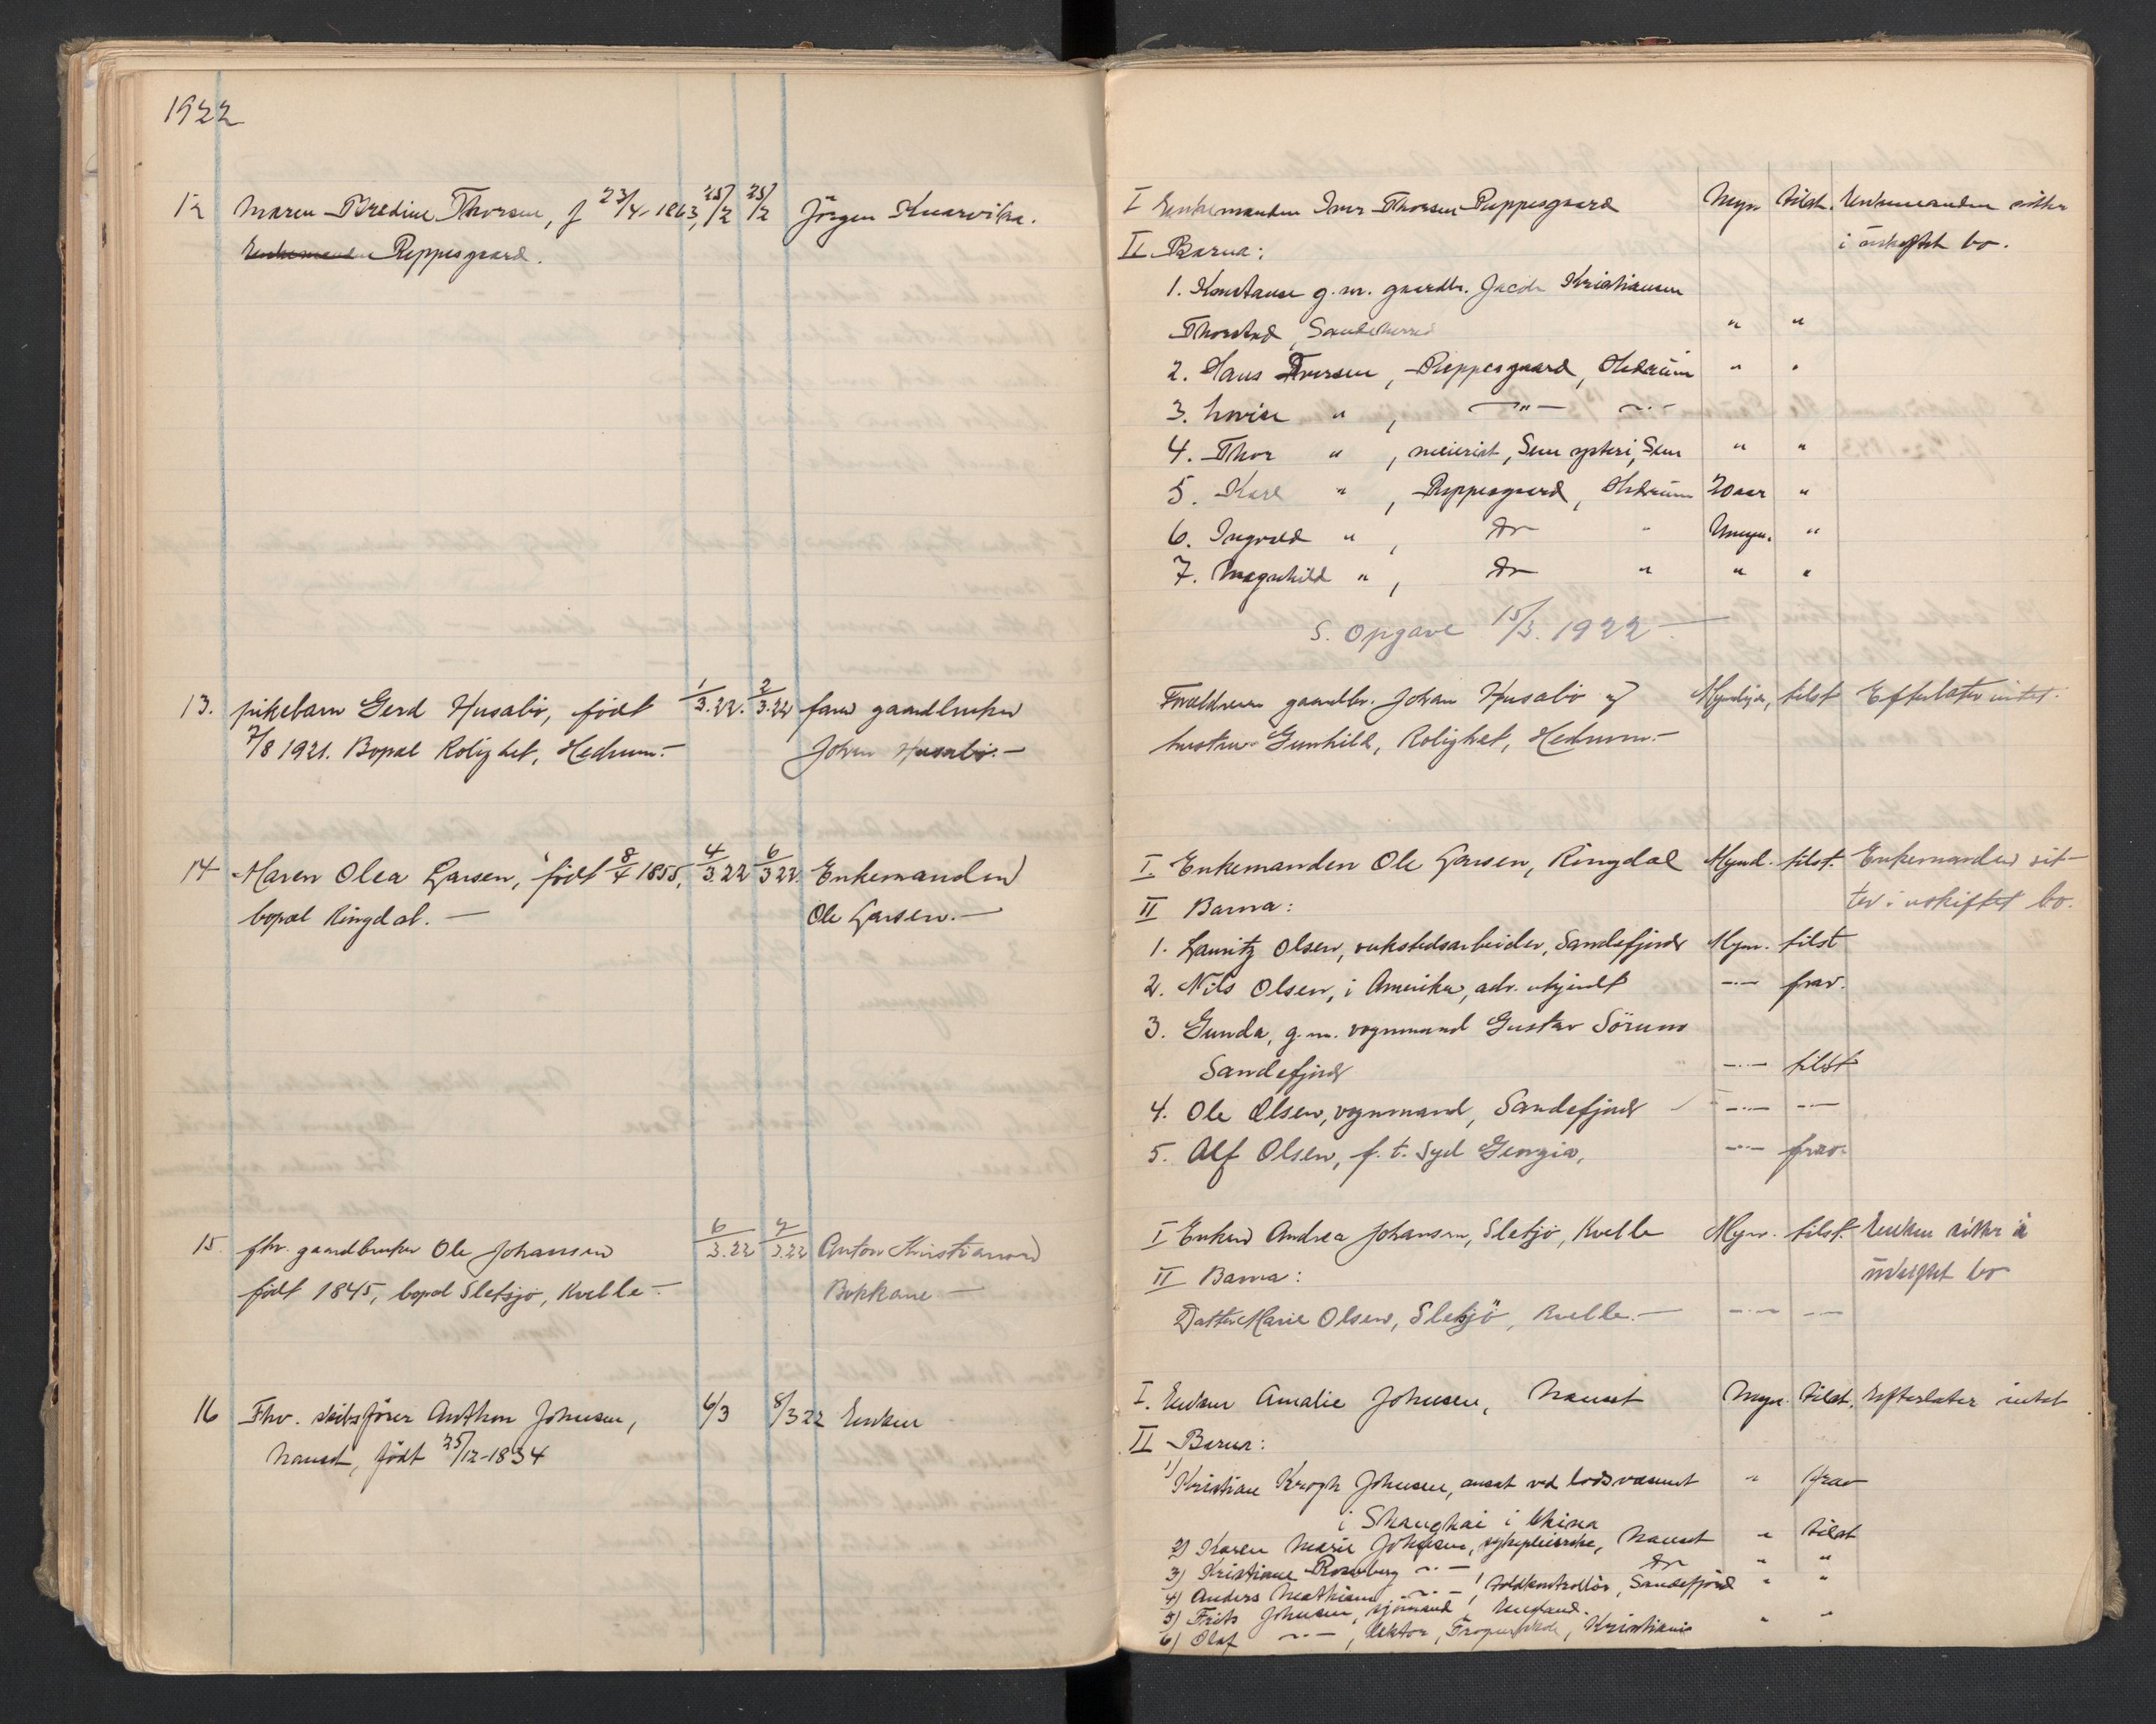 1922
12 Maren Bredine Thorsen, f 23/4-1863, 25/2 25/2 Jörgen Knarvika.
Enkemanden Reppesgaard.
13. pikebarn Gerd Husabø, født 1/3.22. 2/3.22 faren gaardbruker
7/8 1921. Bopæl Rolighet, Hedrum.- Johan Husabø.-
14 Maren Olea Larsen, født 8/4 1855, 4/3.22 6/3.22. Enkemanden
bopæl Ringdal. - Ole Larsen.-
15. fhv. gaardbruker Ole Johansen 6/3.22 7/3.22 Anton Kristiansen
født 1845, bopæl Sletsjø, Kvelle.- Bokkane -
16 Fhv. skibsfører Anthon Johnsen, 6/3 8/3 22 Enken
Nanset, født 25/12-1834
I Enkemanden Iver Thorsen Reppesgaard Myn. tilst. Enkemanden sitter
II Barna: i uskiftet bo.
1. Konstanse g.m. gaardbr. Jacob Kristiansen
Thorstad, Sandeherred " "
2. Hans Iversen, Reppesgaard, Hedrum " "
3. Lovise " , -"- -"-
4. Thor " , meierist, Sem ysteri, Sem " "
5. Karl " , Reppesgaard, Hedrum 20 aar "
6. Ingvald " , do " Umyn. "
7. Magnhild " , do " " "
S. Opgave 15/3. 1922 -
Forældrene gaardbr. Johan Husabø og Myndige, tilst Efterlater intet.
hustru Gunhild, Rolighet, Hedrum.-
I. Enkemanden Ole Larsen, Ringdal Mynd. tilst. Enkemanden sit-
II Barna: ter i uskiftet bo.
1. Lauritz Olsen, verkstedsarbeider, Sandefjord Myn. tilst
2. Nils Olsen, i Amerika, adr. ukjendt -"- frav.
3. Gunda, g.m. vognmand Gustav Sörum
Sandefjord -"- tilst
4. Ole Olsen, vognmand, Sandefjord -"- -"-
5. Alf Olsen, f.t. Syd Georgia, -"- frav.
I Enken Andrea Johansen, Sletsjø, Kvelle Myn. tilst. Enken sitter i
II Barna: uskiftet bo
Datter Marie Olsen, Sletsjö, Kvelle.- -"- -"-
I. Enken Amalie Johnsen, Nanset Myn. tilst. Efterlater intet
II Barna:
1) Kristian Krogh Johnsen, ansat ved lodsvæsenet " frav
i Shanghai i China
2) Karen Marie Johnsen, sykepleierske, Nanset " tilst
3) Kristiane Rosenberg -"- do " "
4) Anders Mathisen -"-, toldkontrollør, Sandefjord " "
5) Frits Johnsen, sjömand, England.
6) Olaf -"-, lektor, Kristiania " "